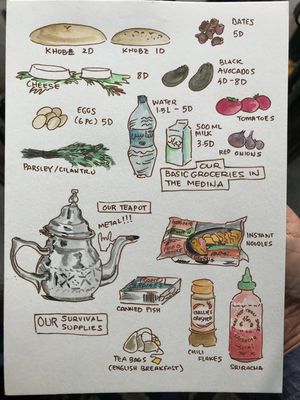 KHOBZ 2D
KHOBZ 1D
DATES
5D
CHEESE
8D
BLACK
AVOCADOS
4D-8D
EGGS
(6 PC) 5D
WATER
1.5L - 5D
500ML
MILK
3.5D
TOMATOES
RED ONIONS
PARSLEY/CILANTRO
OUR
BASIC GROCERIES IN
THE MEDINA
OUR TEAPOT
METAL!!!
INSTANT
NOODLES
OUR SURVIVAL
SUPPLIES
CANNED FISH
CHILLIES
CRUSHED
TEA BAGS
(ENGLISH BREAKFAST)
CHILI
FLAKES
SRIRACHA